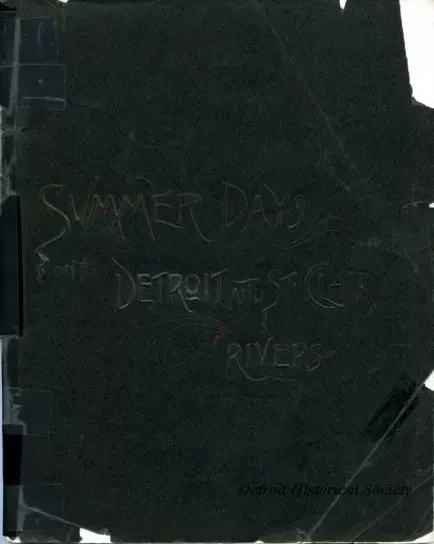 SUMMER DAYS
ON THE
DETROIT AND ST. CLAIR
RIVERS
Detroit Historical Society